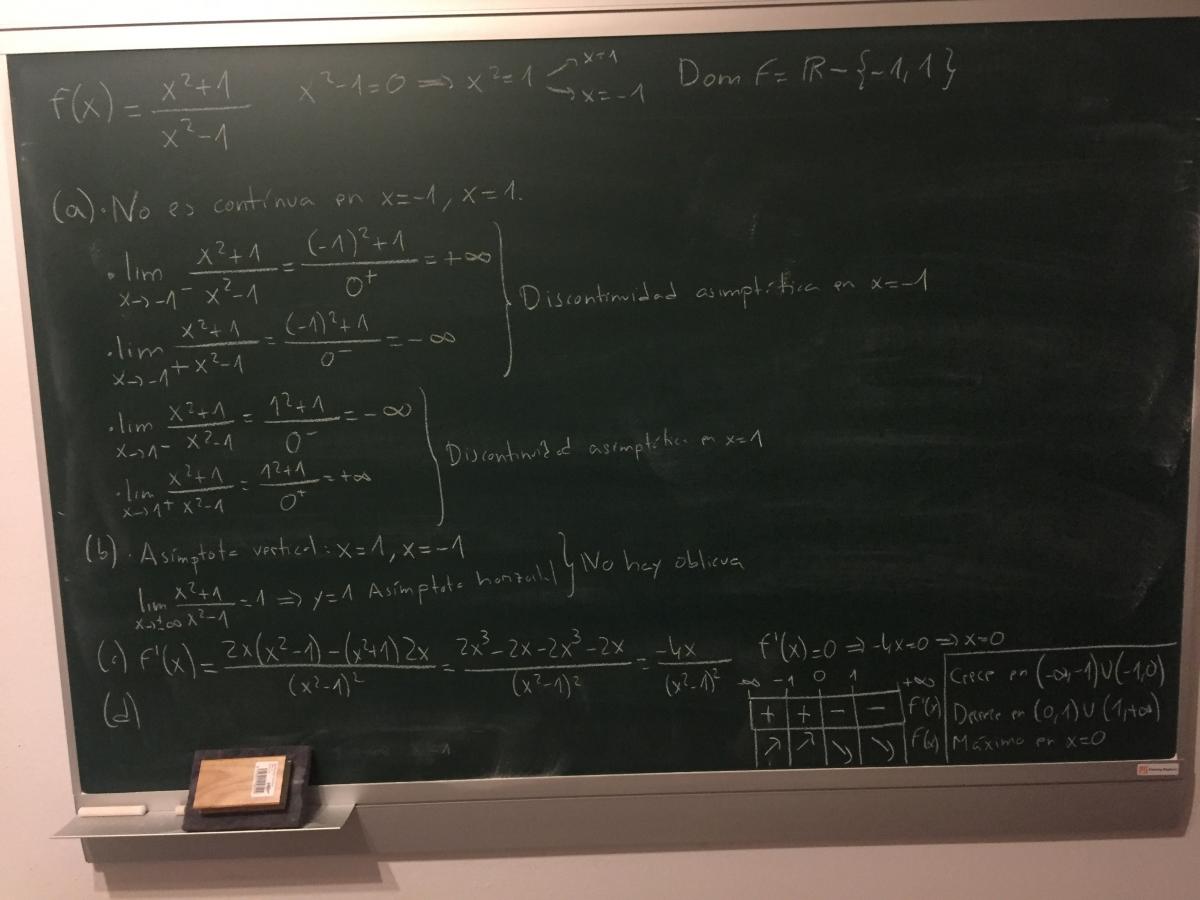 f(x) = x²+1 / x²-1   x²-1=0 ⇒ x²=1 ↗ x=1 ↘ x=-1   Dom F = ℝ - {-1,1}
(a) · No es contínua en x=-1, x=1.
· lim x→-1⁻ x²+1 / x²-1 = (-1)²+1 / 0⁺ = +∞
· lim x→-1⁺ x²+1 / x²-1 = (-1)²+1 / 0⁻ = -∞
} Discontinuidad asimptótica en x=-1
· lim x→1⁻ x²+1 / x²-1 = 1²+1 / 0⁻ = -∞
· lim x→1⁺ x²+1 / x²-1 = 1²+1 / 0⁺ = +∞
} Discontinuidad asimptótica en x=1
(b) · Asímptota vertical: x=1, x=-1
lim x→±∞ x²+1 / x²-1 = 1 ⇒ y=1 Asímptota horizontal
} No hay oblicua
(c) f'(x) = 2x(x²-1) - (x²+1)2x / (x²-1)² = 2x³-2x-2x³-2x / (x²-1)² = -4x / (x²-1)²
f'(x)=0 ⇒ -4x=0 ⇒ x=0
-∞ -1 0 1 +∞
+ + - - f'(x)
↗ ↗ ↘ ↘ f(x)
Crece en (-∞,-1)∪(-1,0)
Decrece en (0,1)∪(1,+∞)
Máximo en x=0
(d)